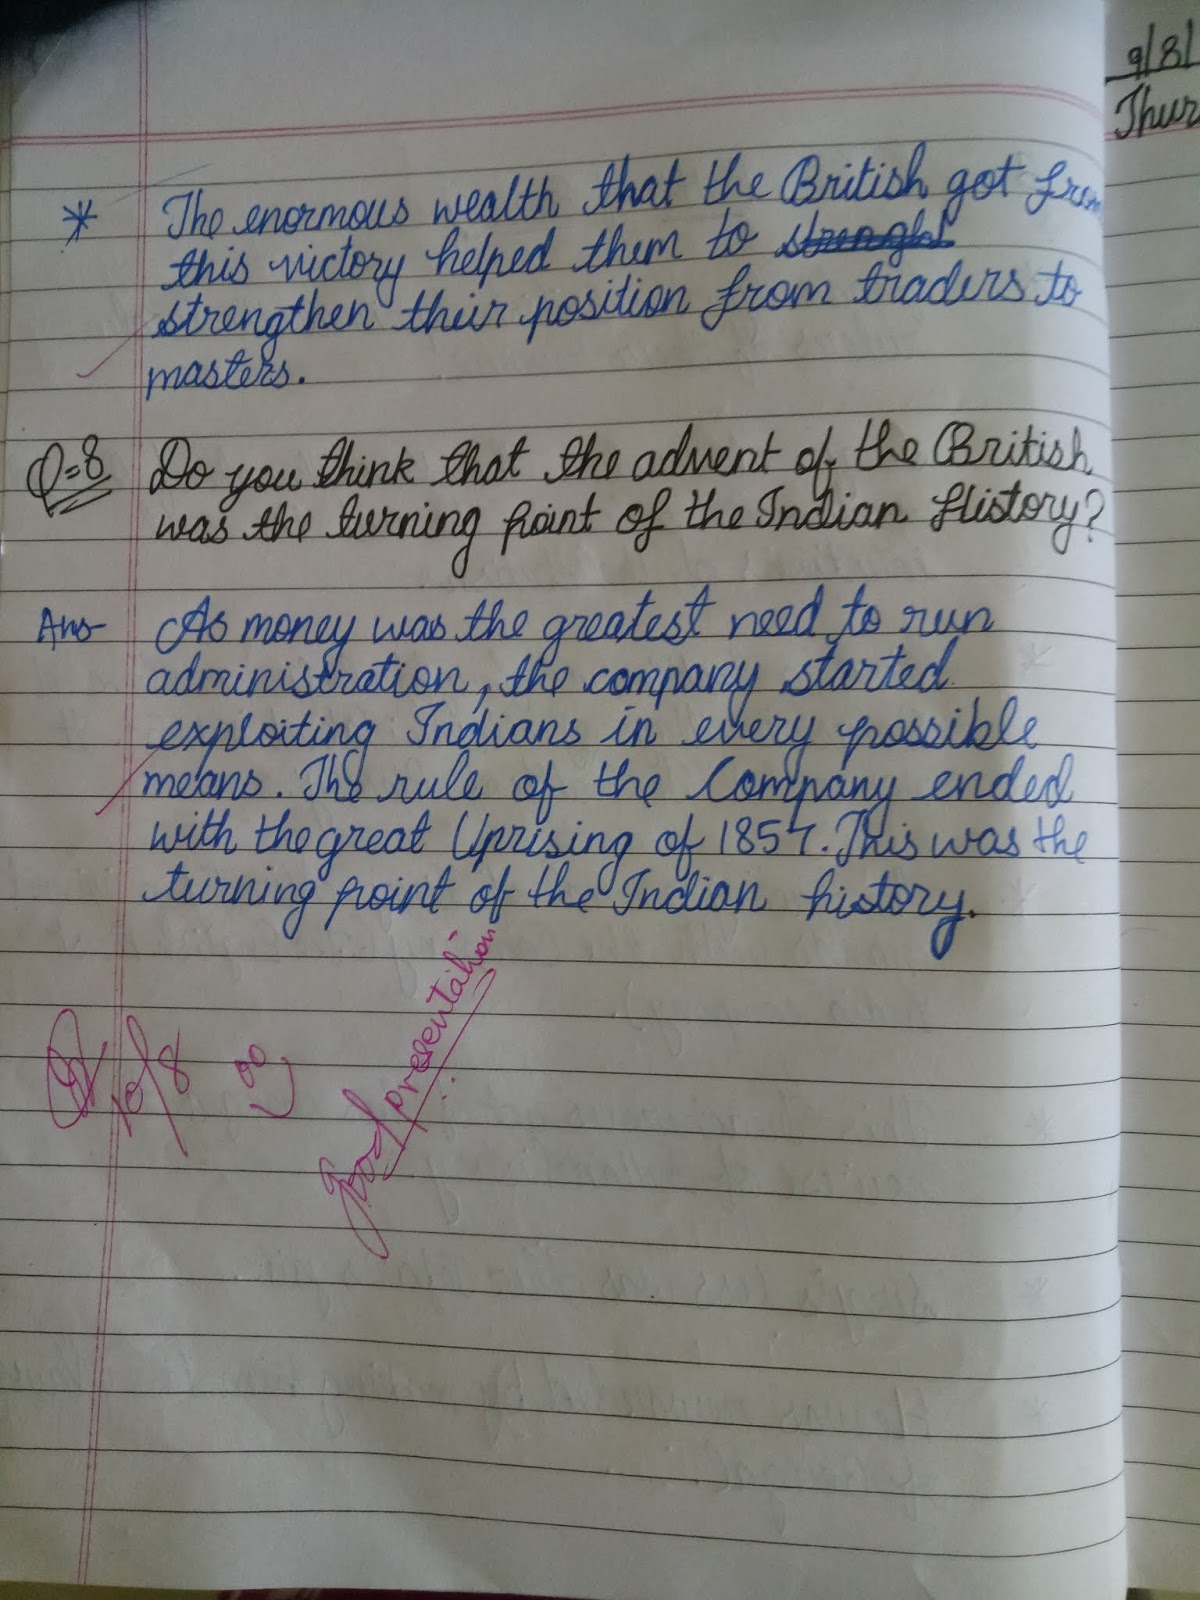 * The enormous wealth that the British got from
this victory helped them to
strengthen their position from traders to
masters.
Q=8 Do you think that the advent of the British
was the turning point of the Indian History?
Ans- As money was the greatest need to run
administration, the company started
exploiting Indians in every possible
means. The rule of the Company ended
with the great Uprising of 1857. This was the
turning point of the Indian history.
10/8
Good presentation
9/8/
Thur